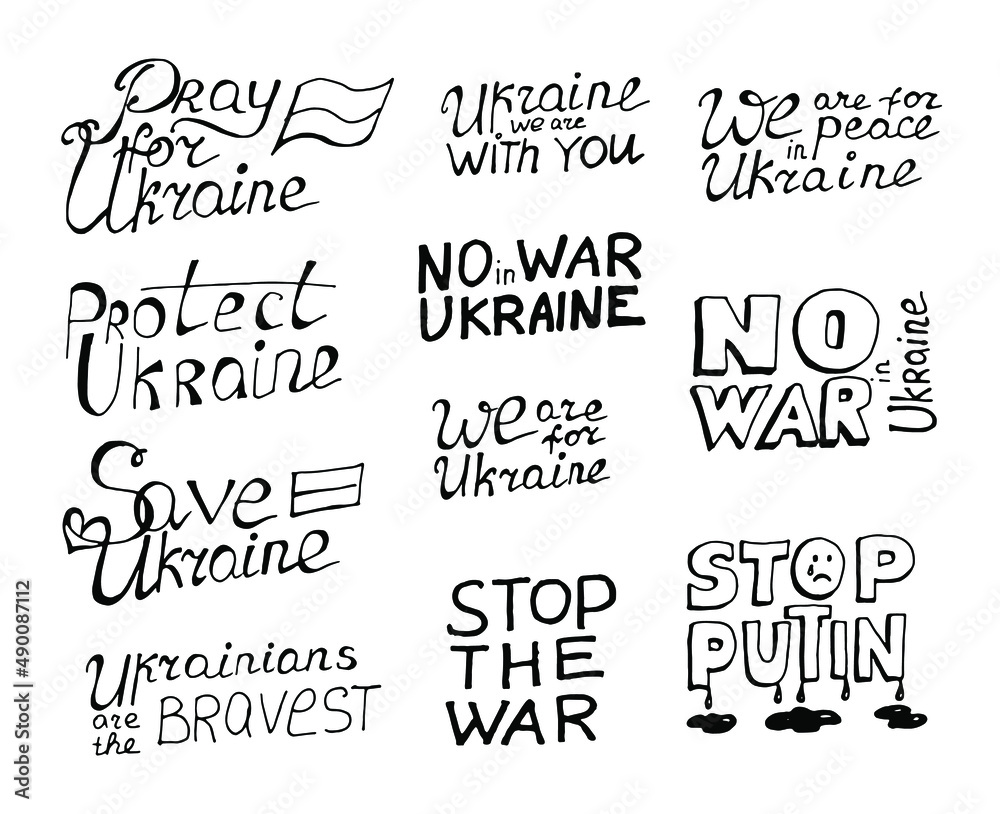 Pray
for
Ukraine
Protect
Ukraine
Save
Ukraine
Ukrainians
are
the BRAVEST
Ukraine
we are
WITH YOU
NO in WAR
UKRAINE
We are
for
Ukraine
STOP
THE
WAR
We are for
in peace
Ukraine
NO
WAR
in Ukraine
STOP
PUTIN
Adobe Stock | #490087112
Adobe Stock